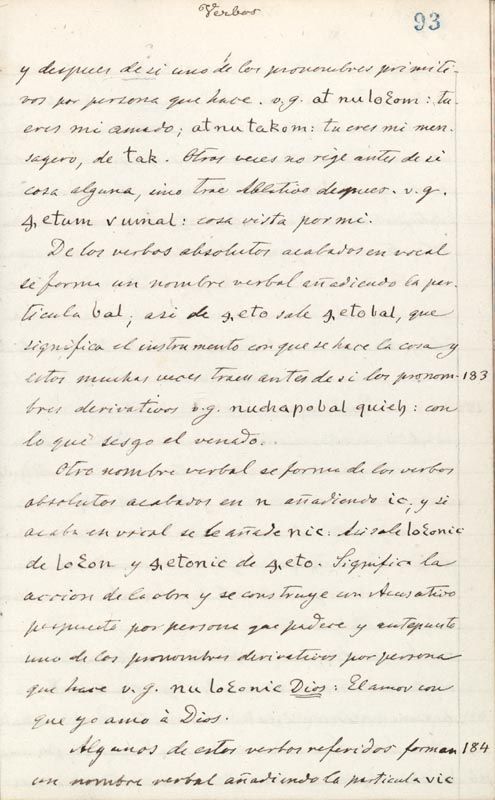 Verbos
93
y despues de si uno de los pronombres primiti-
vos por persona que hace. v.g. at nu loɛom: tu
eres mi amado; at nu takom: tu eres mi men-
sagero, de tak. Otras veces no rige antes de si
cosa alguna, sino trae Ablativo despues. v.g.
ꜭetum vumal: cosa vista por mi.
De los verbos absolutos acabados en vocal
se forma un nombre verbal añadiendo la par-
ticula bal; asi de ꜭeto sale ꜭetobal, que
significa el instrumento con que se hace la cosa y
estos muchas veces traen antes de si los pronom- 183
bres derivativos v.g. nuchapobal quieh: con
lo que sesgo el venado.
Otro nombre verbal se forma de los verbos
absolutos acabados en n añadiendo ic, y si
acaba en vocal se le añade nic: Asi sale loɛonic
de loɛon y ꜭetonic de ꜭeto. Significa la
accion de la obra y se construye con Acusativo
pospuesto por persona que padece y antepuesto
uno de los pronombres derivativos por persona
que hace v.g. nu loɛonic Dios: El amor con
que yo amo à Dios.
Algunos de estos verbos referidos forman 184
un nombre verbal añadiendo la particula vic